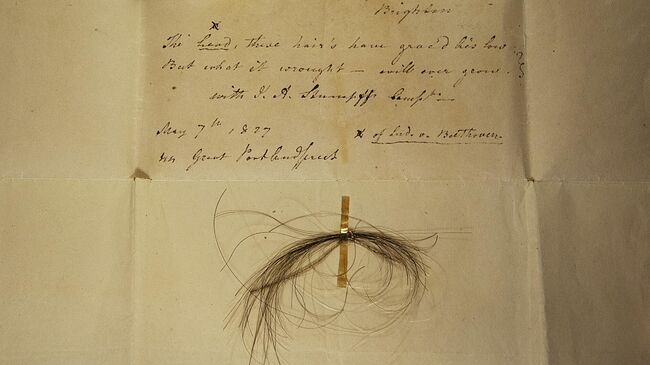 Brighton
x
The Head, these hair's have grac'd lies low
But what it wrought — will ever grow.
with J. A. Stumpff's Compts—
May 7th 1827
x of Lud. v. Beethoven.
44 Great Portland Street